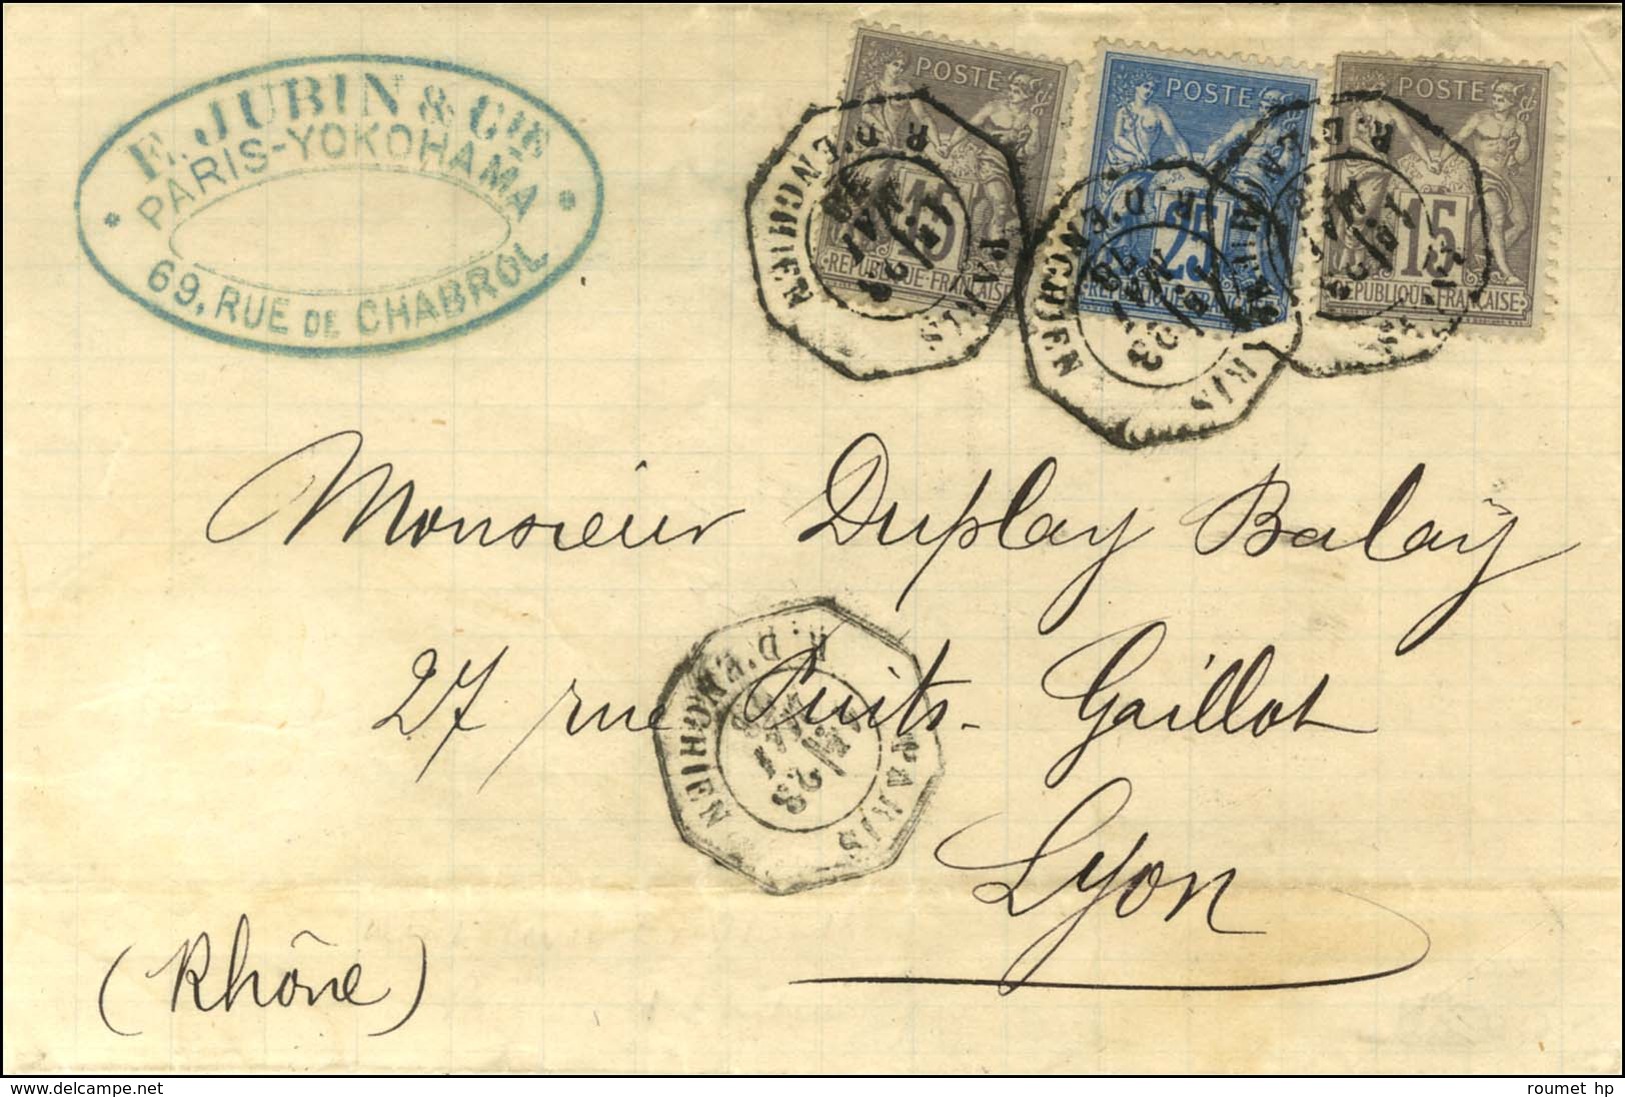 E. JUBIN & Cie
PARIS-YOKOHAMA
69, RUE DE CHABROL
POSTE
15
REPUBLIQUE FRANÇAISE
POSTE
25
REPUBLIQUE FRANÇAISE
POSTE
15
REPUBLIQUE FRANÇAISE
PARIS
R. D'ENGHIEN
PARIS
R. D'ENGHIEN
23
MAI
78
PARIS
R. D'ENGHIEN
Monsieur Duplay Balaÿ
27 rue Puits-Gaillot
Lyon
(Rhône)
PARIS
R. D'ENGHIEN
23
MAI
78
roumet hp